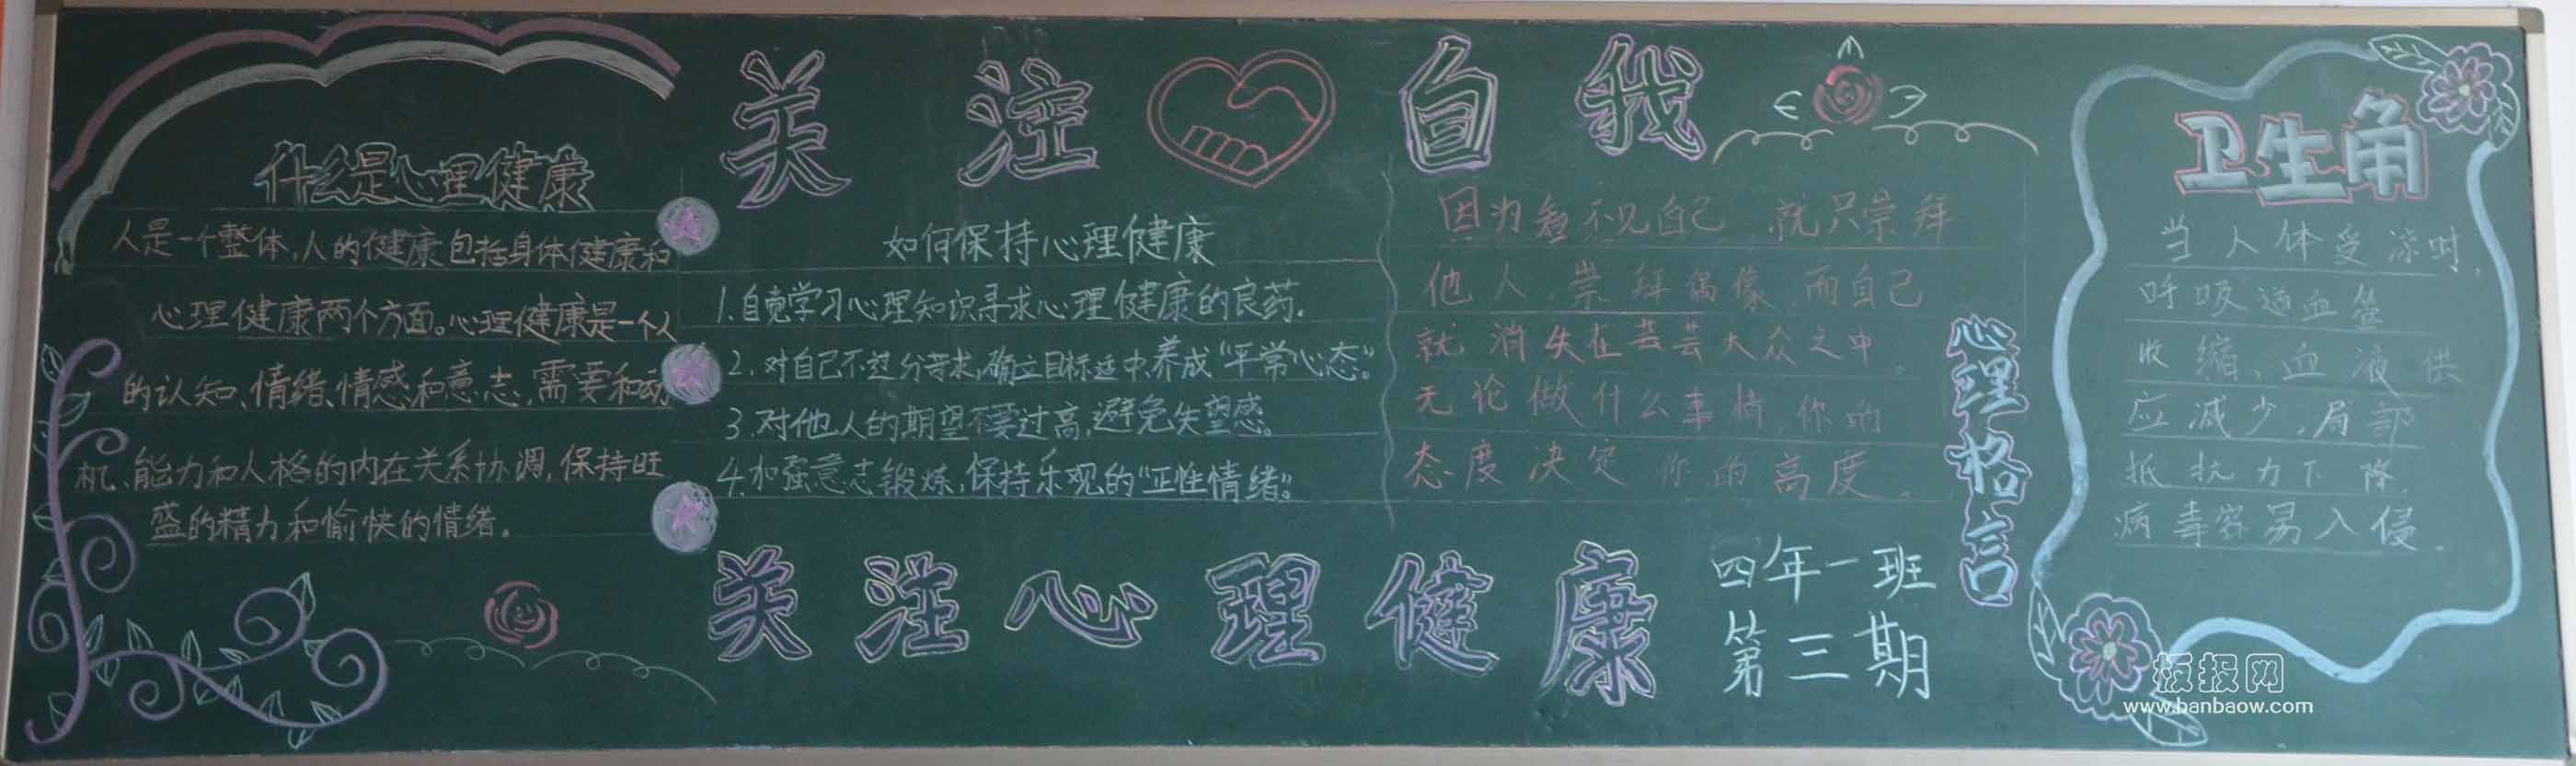 什么是心理健康
人是一个整体,人的健康包括身体健康和
心理健康两个方面。心理健康是一个人
的认知、情绪、情感和意志,需要和动
机、能力和人格的内在关系协调,保持旺
盛的精力和愉快的情绪。
关注
自我
如何保持心理健康
1.自觉学习心理知识寻求心理健康的良药.
2.对自己不过分苛求,确立目标适中,养成“平常心态”。
3.对他人的期望不要过高,避免失望感。
4.加强意志锻炼,保持乐观的“正性情绪”。
因为看不见自己,就只崇拜
他人,崇拜偶像,而自己
就消失在芸芸大众之中。
无论做什么事情,你的
态度决定你的高度。
心理格言
关注心理健康
四年一班
第三期
卫生角
当人体受凉时,
呼吸道血管
收缩、血液供
应减少,局部
抵抗力下降,
病毒容易入侵.
板报网
www.banbaow.com